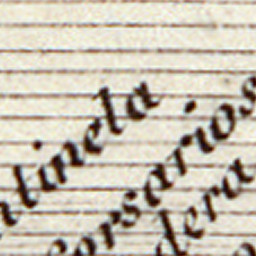 ntinela
orsarios
dera